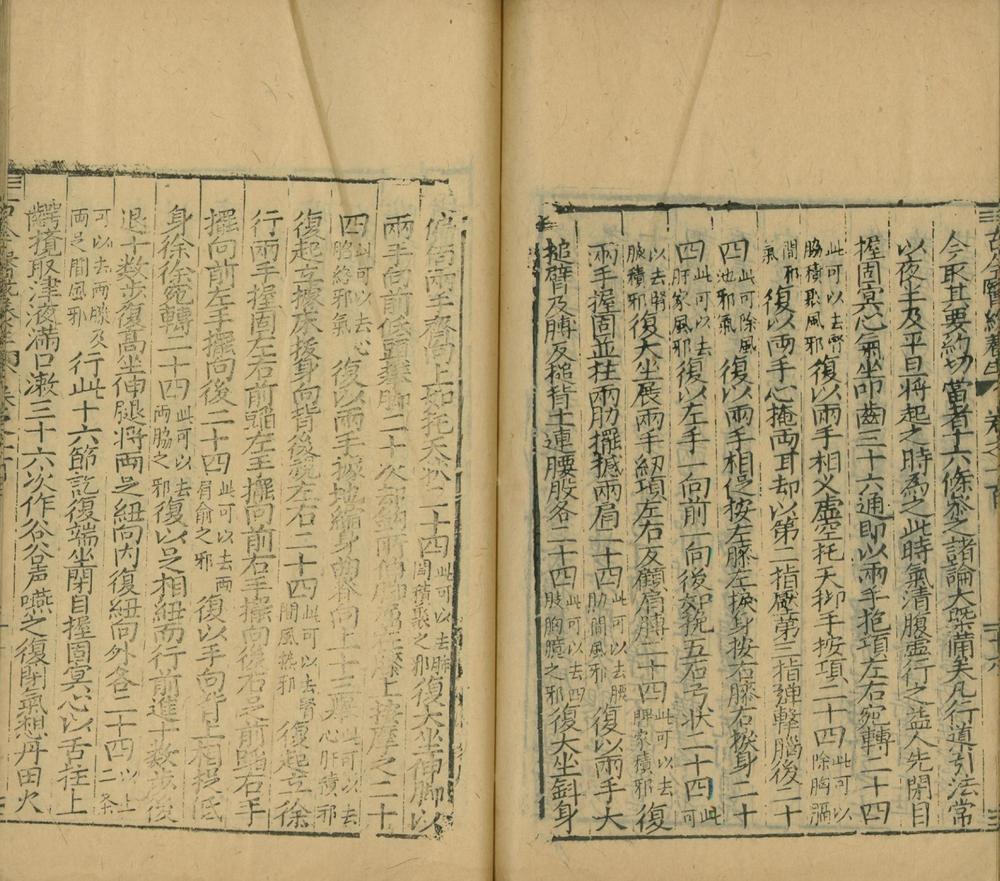 今取其要約切當者十六條參之諸論大㮣備矣凡行道引法常
以夜半及平旦將起之時為之此時氣清腹虛行之益人先閉目
握固冥心氣坐叩齒三十六通即以兩手抱項左右宛轉二十四
此可以去兩脇積聚風邪復以兩手相义虛空托天抑手按項二十四此可以除胸膈
間邪氣復以兩手心掩両耳却以第二指壓第三指弹擊腦後二十
四此可除風池邪氣復以兩手相促按左膝左捩身按右膝右捩身二十
四此可以去肝家風邪復以左手一向前一向後如挽五石弓状二十四此可
以去臂腋積邪復大坐展兩手紐項左右反顧肩膊二十四此可以去脾家積邪復
兩手握固並柱兩肋擺撼兩肩二十四此可以去腰肋間風邪復以兩手大
搥臂及膊反搥背上連腰股各二十四此可以去四肢胸臆之邪復大坐斜身
偏倚兩手齊向上如托天状二十四此可以去肺間積聚之邪復大坐伸脚以
兩手向前低頭攀脚十二次
四此可以去心胞絡邪氣復以兩手據地縮身曲脊向上十三舉此可以去心肝積邪
復起立據床捩身向背後視左右二十四此可以去腎間風熱邪復起立徐
行兩手握固左右前踏左手擺向前右手擺向後右足前踏右手
擺向前左手擺向後二十四此可以去両肩俞之邪復以手向背上相捉低
身徐徐宛轉二十四此可以去両脇之邪復以足相紐而行前進十数步復後
退十数步復髙坐伸腿將両足紐向内復紐向外各二十四以上二条
可以去両膝及両足間風邪行此十六節訖復端坐閉目握固冥心以舌拄上
腭攪取津液滿口漱三十六次作谷谷声嚥之復閉氣想丹田火